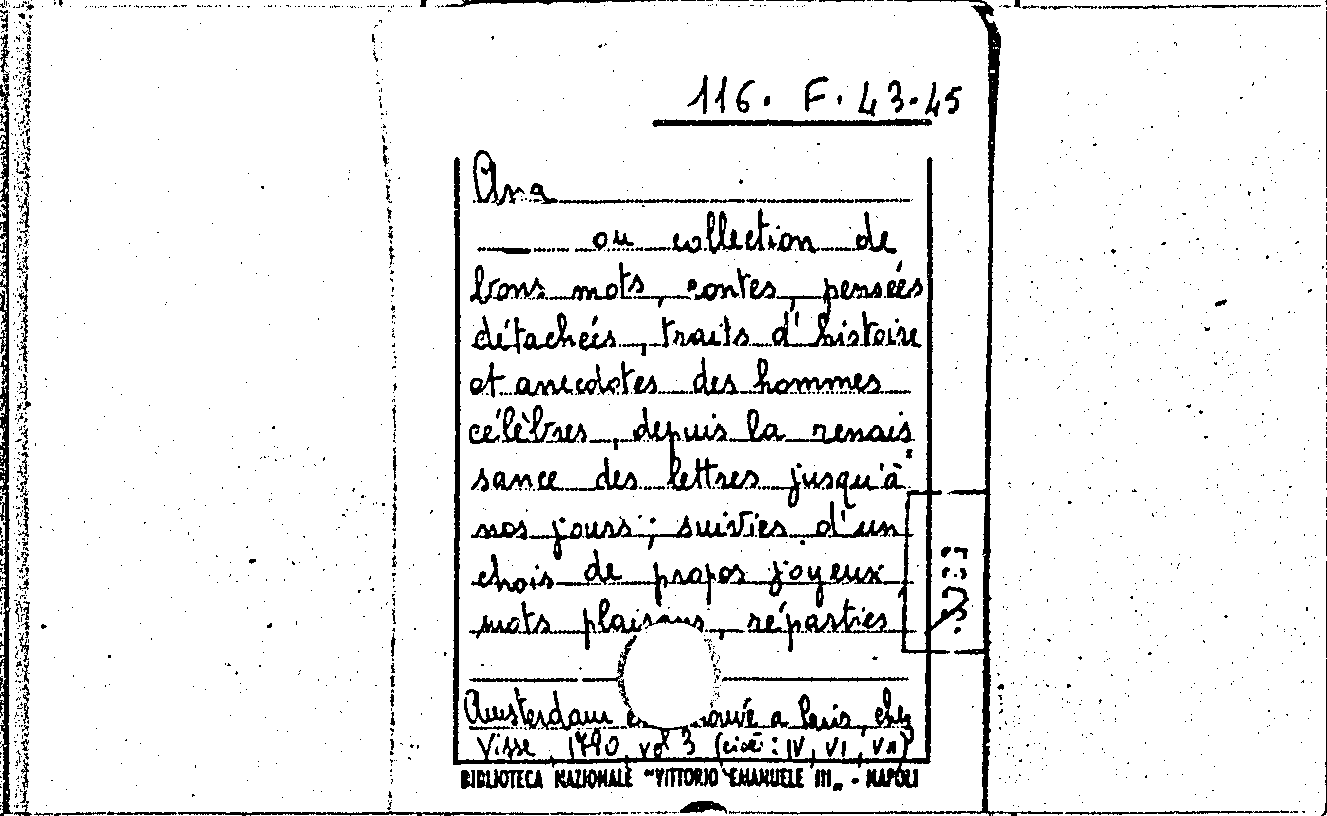 116. F. 43-45
Ana
ou collection de
bons mots, contes, pensées
détachées, traits d'histoire
et anecdotes des hommes
célèbres, depuis la renais
sance des lettres jusqu'à
nos jours; suivies d'un
chois de propos joyeux
mots plaisans, réparties
Amsterdam a Paris, chez
Visse, 1790, vol 3 (cioè: IV, VI, VII)
BIBLIOTECA NAZIONALE "VITTORIO EMANUELE III„ - NAPOLI